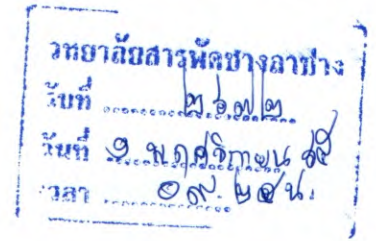 วิทยาลัยสารพัดช่างลำปาง
รับที่ ๒๖๗๒
วันที่ ๑ พฤศจิกายน ๖๕
เวลา ๐๙.๒๔ น.